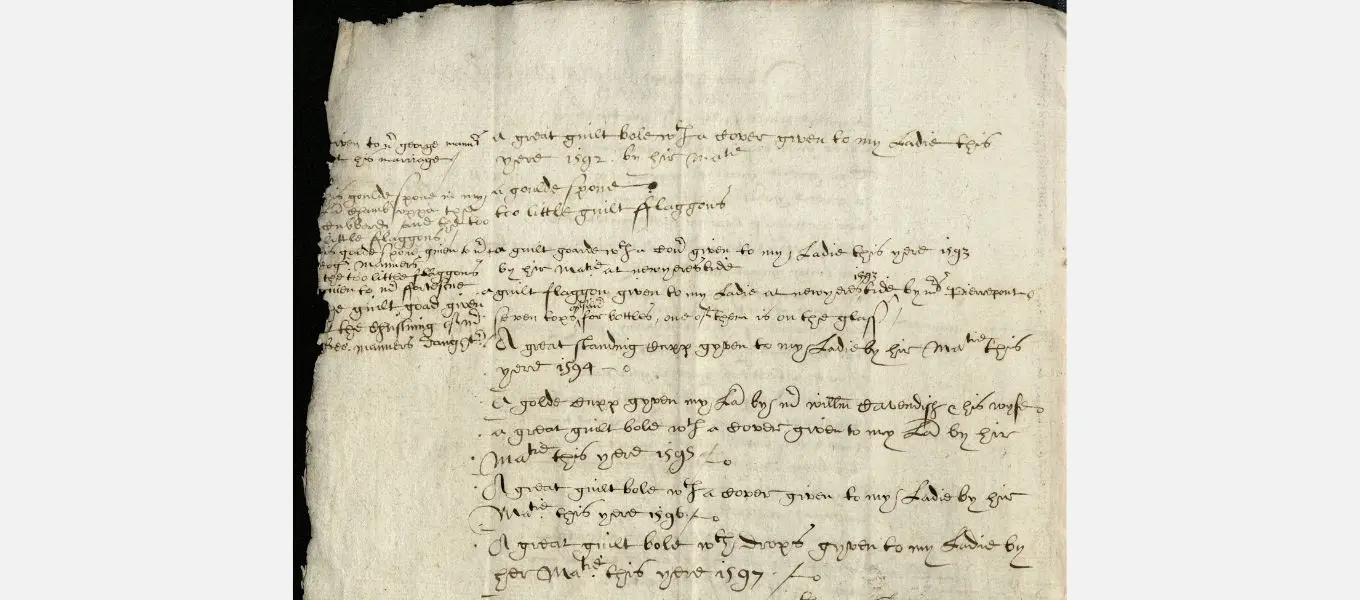 given to mr george manners
at his marriage
this goulde spone in my
La: chamber uppon the
cubberd and the too
little flaggons
this goulde spone given to mr
georg manners
the too little flaggons
given to mr fortescue
the guilt goad given
at the christning of mr
geo. manners daughter
A great guilt bole wth a cover given to my Ladie this
yere 1592. by hir Matie
a goulde spone
too little guilt flaggons
a guilt goarde wth a cover given to my Ladie this yere 1593
by hir Matie at newyerestide
a guilt flaggon given to my Ladie at newyerestide 1593 by mrs Pierrepont
seven tops for bottles, one of them is on the glass
A great standing cupp gyven to my Ladie by hir Matie this
yere 1594
A golde cupp gyven my La: by mr willm Cavendish & his wyfe
a great guilt bole wth a cover given to my La: by hir
Matie this yere 1595
A great guilt bole wth a cover given to my Ladie by hir
Matie this yere 1596
A great guilt bole wth drops gyven to my Ladie by
her Matie this yere 1597